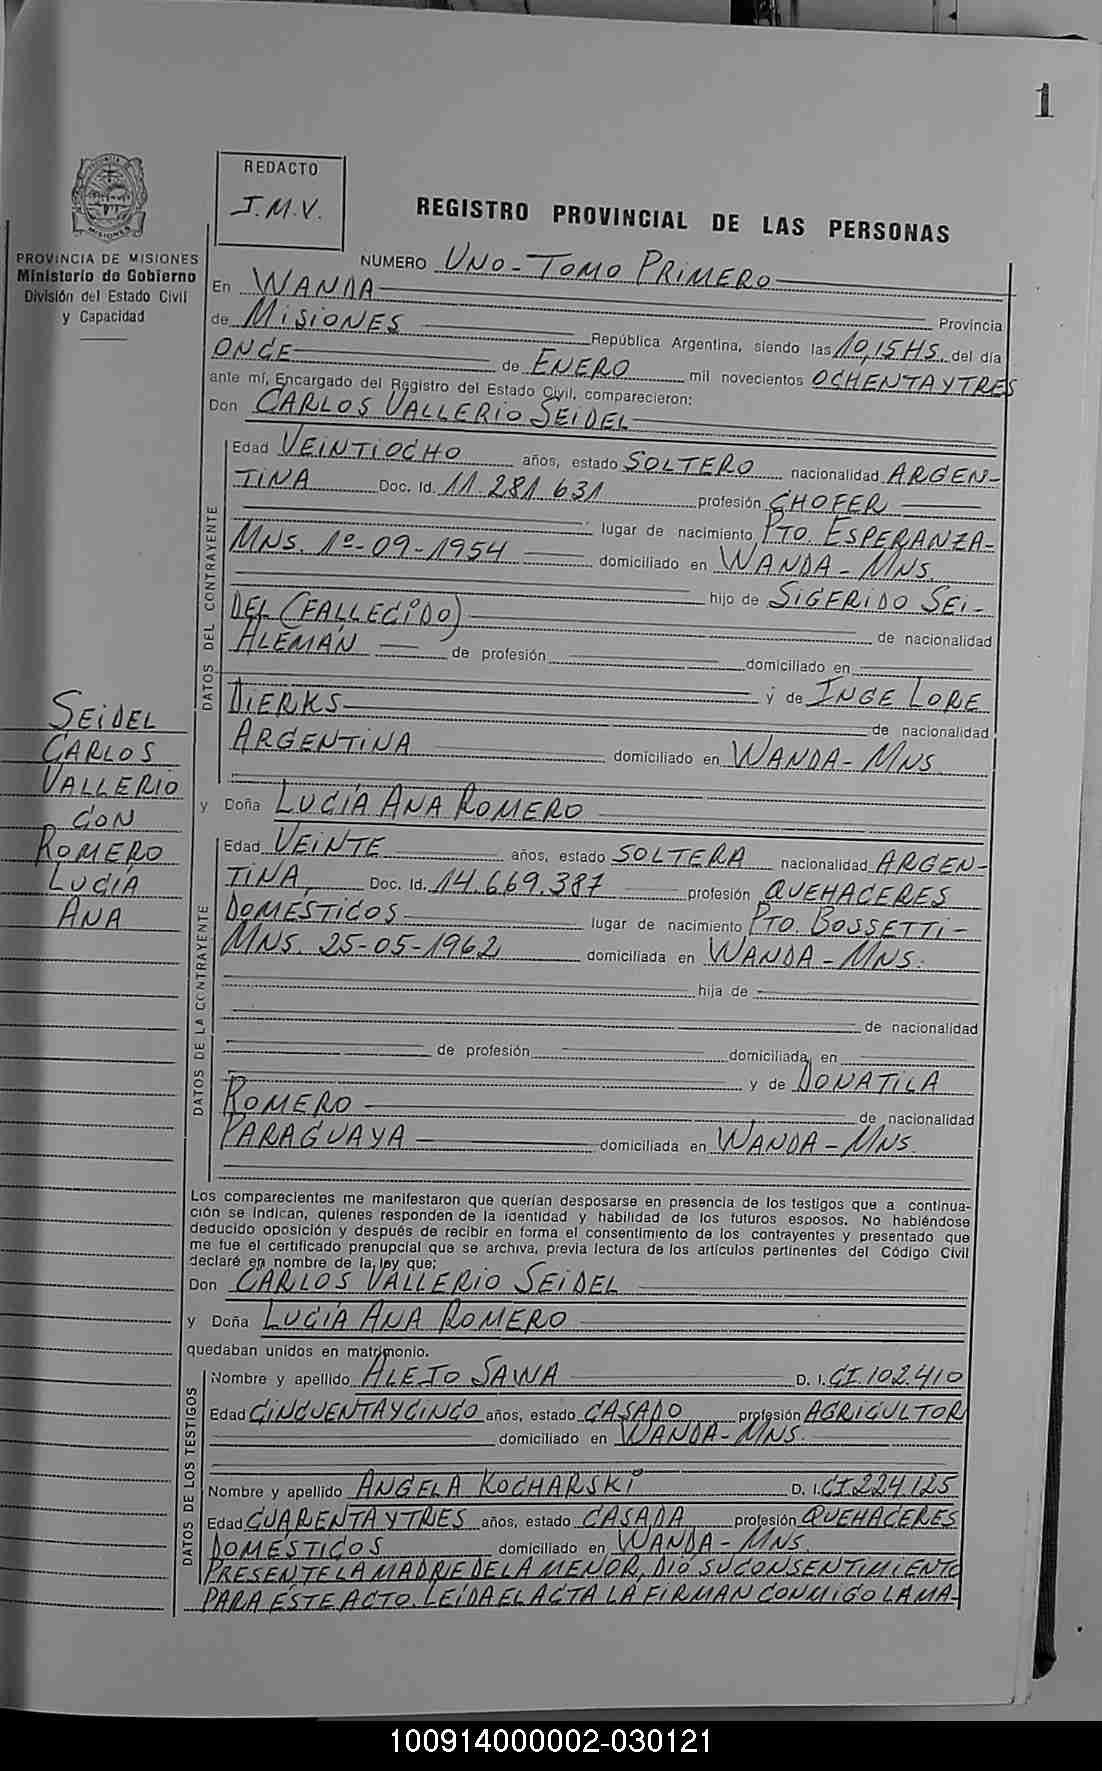 1
REDACTO
I.M.V.
REGISTRO PROVINCIAL DE LAS PERSONAS
PROVINCIA DE MISIONES
Ministerio de Gobierno
División del Estado Civil
y Capacidad
NUMERO UNO-TOMO PRIMERO
En WANDA
Provincia
de MISIONES República Argentina, siendo las 10,15 HS. del día
ONCE de ENERO mil novecientos OCHENTA Y TRES
ante mí, Encargado del Registro del Estado Civil, comparecieron:
Don CARLOS VALLERIO SEIDEL
DATOS DEL CONTRAYENTE
Edad VEINTIOCHO años, estado SOLTERO nacionalidad ARGEN-
TINA Doc. Id. 11.281.631 profesión CHOFER
lugar de nacimiento PTO. ESPERANZA-
MNS. 1º-09-1954 domiciliado en WANDA-MNS.
hijo de SIGFRIDO SEI-
DEL (FALLECIDO)
de nacionalidad
ALEMÁN de profesión domiciliado en
y de INGE LORE
DIERKS
de nacionalidad
ARGENTINA domiciliado en WANDA-MNS
y Doña LUCÍA ANA ROMERO
SEIDEL
CARLOS
VALLERIO
CON
ROMERO
LUCÍA
ANA
DATOS DE LA CONTRAYENTE
Edad VEINTE años, estado SOLTERA nacionalidad ARGEN-
TINA, Doc. Id. 14.669.387 profesión QUEHACERES
DOMÉSTICOS lugar de nacimiento PTO. BOSSETTI-
MNS. 25-05-1962 domiciliada en WANDA-MNS.
hija de
de nacionalidad
de profesión domiciliada en
y de DONATILA
ROMERO
de nacionalidad
PARAGUAYA domiciliada en WANDA-MNS.
Los comparecientes me manifestaron que querían desposarse en presencia de los testigos que a continua-
ción se indican, quienes responden de la identidad y habilidad de los futuros esposos. No habiéndose
deducido oposición y después de recibir en forma el consentimiento de los contrayentes y presentado que
me fue el certificado prenupcial que se archiva, previa lectura de los artículos pertinentes del Código Civil
declaré en nombre de la ley que;
Don CARLOS VALLERIO SEIDEL
y Doña LUCÍA ANA ROMERO
quedaban unidos en matrimonio.
DATOS DE LOS TESTIGOS
Nombre y apellido ALEJO SAWA D. I. CI.102.410
Edad CINCUENTA Y CINCO años, estado CASADO profesión AGRICULTOR
domiciliado en WANDA-MNS.
Nombre y apellido ANGELA KOCHARSKI D. I. CI.224.125
Edad CUARENTA Y TRES años, estado CASADA profesión QUEHACERES
DOMÉSTICOS domiciliado en WANDA-MNS.
PRESENTE LA MADRE DE LA MENOR, DIÓ SU CONSENTIMIENTO
PARA ÉSTE ACTO. LEÍDA EL ACTA LA FIRMAN CONMIGO LA MA-
100914000002-030121